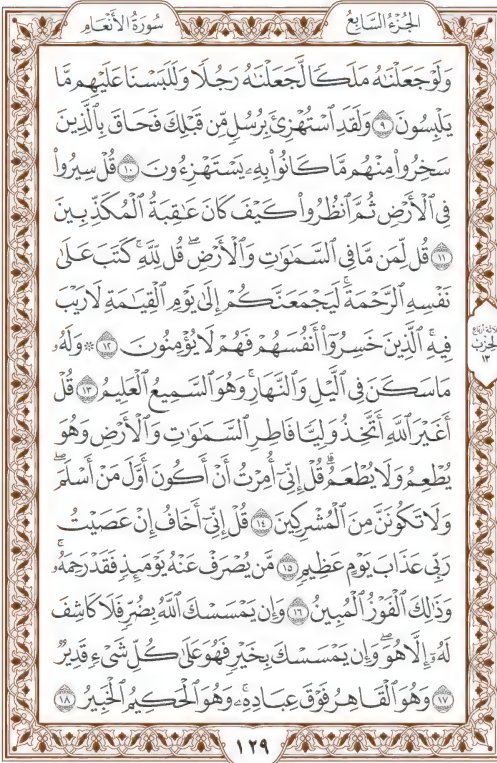 سُورَةُ الأَنْعَامِ
الجُزْءُ السَّابِعُ
وَلَوْ جَعَلْنَٰهُ مَلَكًا لَّجَعَلْنَٰهُ رَجُلًا وَلَلَبَسْنَا عَلَيْهِم مَّا
يَلْبِسُونَ ۝٩ وَلَقَدِ ٱسْتُهْزِئَ بِرُسُلٍ مِّن قَبْلِكَ فَحَاقَ بِٱلَّذِينَ
سَخِرُوا۟ مِنْهُم مَّا كَانُوا۟ بِهِۦ يَسْتَهْزِءُونَ ۝١٠ قُلْ سِيرُوا۟
فِى ٱلْأَرْضِ ثُمَّ ٱنظُرُوا۟ كَيْفَ كَانَ عَٰقِبَةُ ٱلْمُكَذِّبِينَ
۝١١ قُل لِّمَن مَّا فِى ٱلسَّمَٰوَٰتِ وَٱلْأَرْضِ ۖ قُل لِّلَّهِ ۚ كَتَبَ عَلَىٰ
نَفْسِهِ ٱلرَّحْمَةَ ۚ لَيَجْمَعَنَّكُمْ إِلَىٰ يَوْمِ ٱلْقِيَٰمَةِ لَا رَيْبَ
فِيهِ ۚ ٱلَّذِينَ خَسِرُوٓا۟ أَنفُسَهُمْ فَهُمْ لَا يُؤْمِنُونَ ۝١٢ ۞ وَلَهُۥ
مَا سَكَنَ فِى ٱلَّيْلِ وَٱلنَّهَارِ ۚ وَهُوَ ٱلسَّمِيعُ ٱلْعَلِيمُ ۝١٣ قُلْ
أَغَيْرَ ٱللَّهِ أَتَّخِذُ وَلِيًّا فَاطِرِ ٱلسَّمَٰوَٰتِ وَٱلْأَرْضِ وَهُوَ
يُطْعِمُ وَلَا يُطْعَمُ ۗ قُلْ إِنِّىٓ أُمِرْتُ أَنْ أَكُونَ أَوَّلَ مَنْ أَسْلَمَ ۖ
وَلَا تَكُونَنَّ مِنَ ٱلْمُشْرِكِينَ ۝١٤ قُلْ إِنِّىٓ أَخَافُ إِنْ عَصَيْتُ
رَبِّى عَذَابَ يَوْمٍ عَظِيمٍ ۝١٥ مَّن يُصْرَفْ عَنْهُ يَوْمَئِذٍ فَقَدْ رَحِمَهُۥ ۚ
وَذَٰلِكَ ٱلْفَوْزُ ٱلْمُبِينُ ۝١٦ وَإِن يَمْسَسْكَ ٱللَّهُ بِضُرٍّ فَلَا كَاشِفَ
لَهُۥٓ إِلَّا هُوَ ۖ وَإِن يَمْسَسْكَ بِخَيْرٍ فَهُوَ عَلَىٰ كُلِّ شَىْءٍ قَدِيرٌ
۝١٧ وَهُوَ ٱلْقَاهِرُ فَوْقَ عِبَادِهِۦ ۚ وَهُوَ ٱلْحَكِيمُ ٱلْخَبِيرُ ۝١٨
ثلاثة أرباع
الحزب
١٣
١٢٩